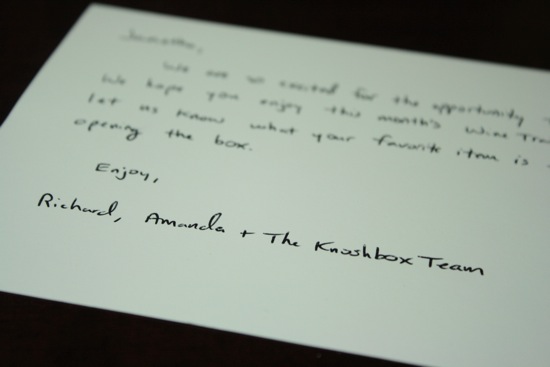 We are so excited for the opportunity
We hope you enjoy this month's Wine
let us know what your favorite item is
opening the box.
Enjoy,
Richard, Amanda + The Knoshbox Team